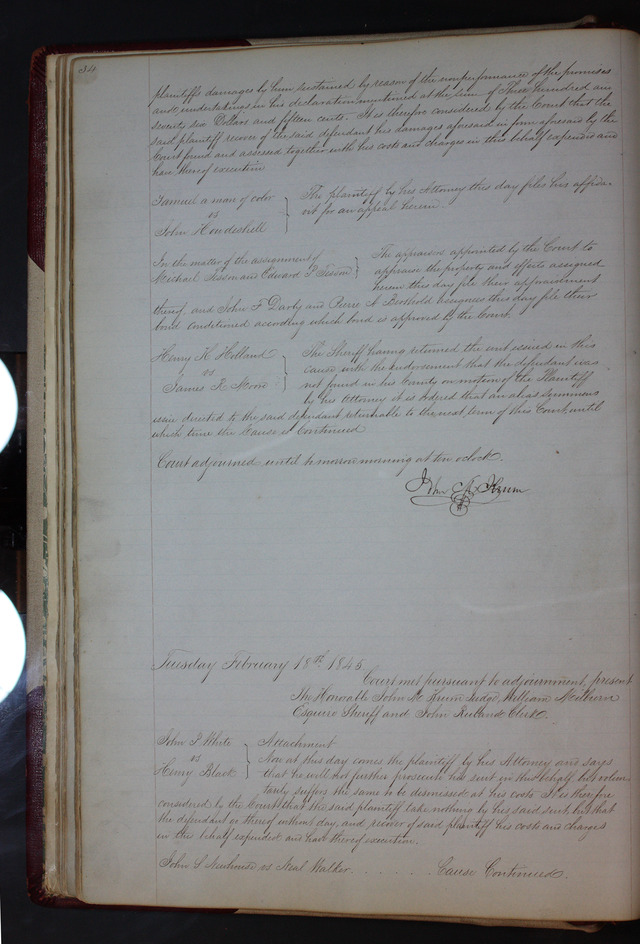 34
plaintiffs damages by him sustained by reason of the nonperformance of the promises
and undertakings in his declaration mentioned at the sum of Three hundred and
seventy six Dollars and fifteen cents. It is therefore considered by the Court that the
said plaintiff recover of the said defendant his damages aforesaid in form aforesaid by the
Court found and assessed together with his costs and charges in this behalf expended and
have thereof execution
Samuel a man of color
vs
John Howdeshell
The plaintiff by his Attorney this day files his affida-
vit for an appeal herein.
In the matter of the assignment of
Michael Tesson and Edward P. Tesson
The appraisers appointed by the Court to
appraise the property and effects assigned
herein this day file their appraisement
thereof, and John F Darby and Pierre A Berthold assignees this day file their
bond conditioned according which bond is approved by the Court.
Henry H. Holland
vs
James R. Moore
The Sheriff having returned the writ issued in this
cause with the endorsement that the defendant was
not found in his County on motion of the Plaintiff
by his Attorney it is ordered that an alias Summons
issue directed to the said defendant returnable to the next term of this Court, until
which time this Cause is Continued
Court adjourned until to morrow morning at ten oclock.
John M. Krum
Tuesday February 18th 1845
Court met pursuant to adjournment, present
The Honorable John M Krum Judge, William Milburn
Esquire Sheriff and John Ruland Clerk.
John P White
vs
Henry Black
Attachment
Now at this day comes the plaintiff by his Attorney and says
that he will not further prosecute his suit in this behalf, but volun-
tarily suffers the same to be dismissed at his costs. It is therefore
considered by the Court that the said plaintiff take nothing by his said suit, but that
the defendant go thereof without day, and recover of said plaintiff his costs and charges
in this behalf expended and have thereof execution.
John S Newhouse vs Neal Walker . . . . . . . . Cause Continued.